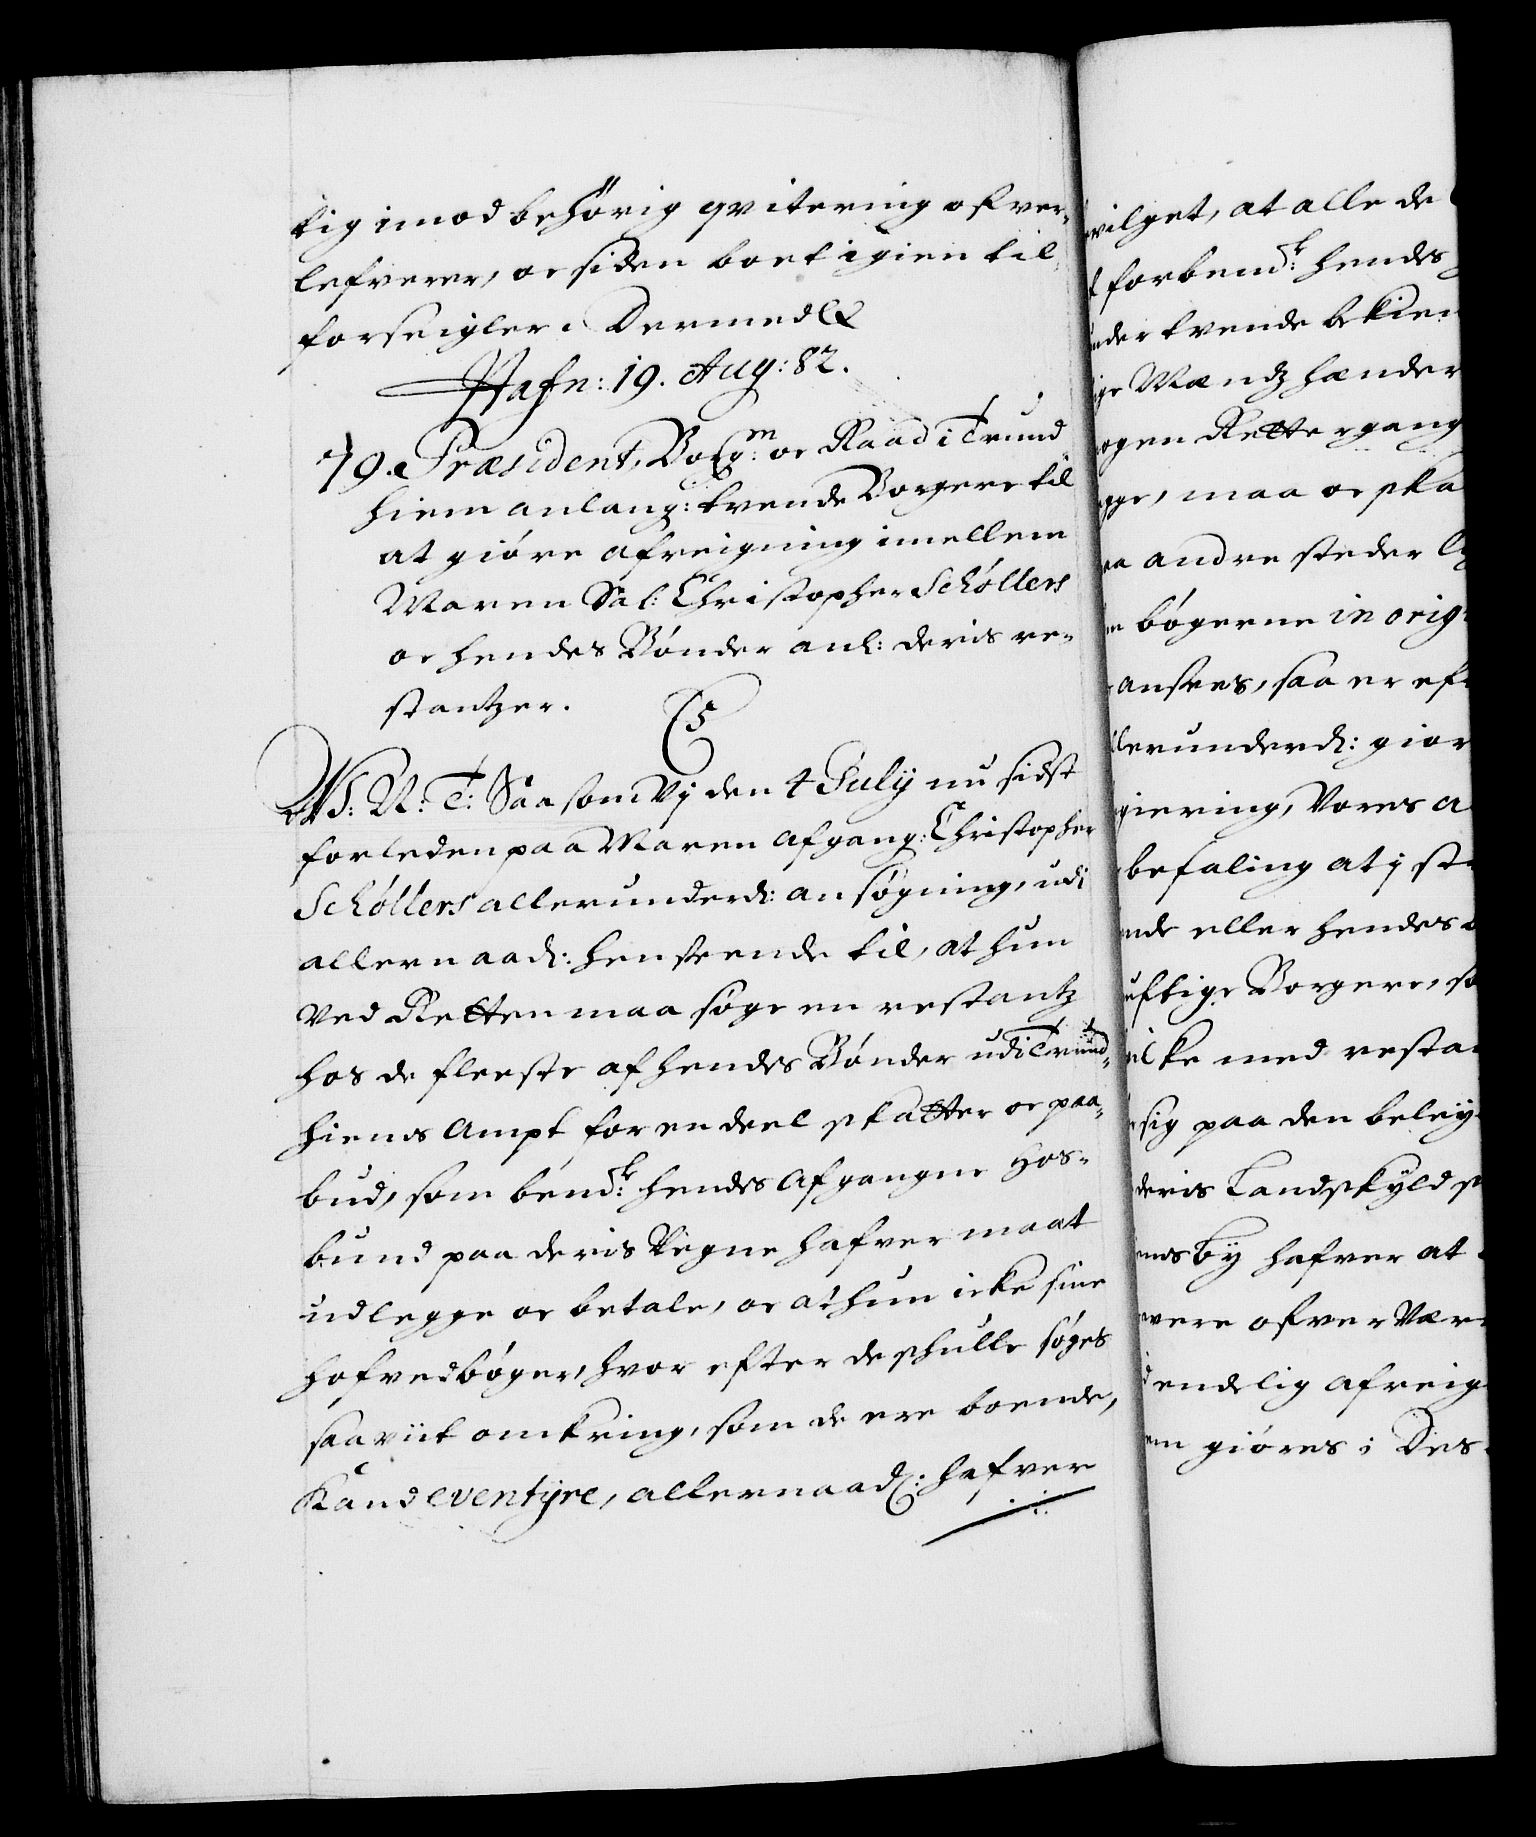 tig imod behörig qvitering ofver-
lefverer, oc siden boet igien til-
forseigler. Dermed &c
Hafn: 19. Aug: 82.
79. Præsident, Borg^m: oc Raad i Trund
hiem anlang: tvende Borgere til
at giöre afreigning imellem
Maren Sal: Christopher Schöllers
oc hendes Bönder anl: deris re-
stantzer.
C5
V S: N: T: Saa som Vj den 4 July nu sidst
forleden paa Maren afgang: Christopher
Schöllers allerunderd: ansögning, udi
allernaad: henseende til, at hun
ved Retten maa söge en restantz
hos de fleeste af hendes Bönder udi Trund-
hiems Ampt for en deel skatter oc paa-
bud, som bem^t: hendes afgangne Hos-
bund paa deris Vegne hafver maat
udlegge oc betale, oc at hun icke sine
hofvedböger, hvor efter de skulle söges
saa viit omkring, som de ere boende,
Kand eventyre, allernaad: hafver
vilget, at alle de
forbem^t: hendes
under tvende bekien
ige Mændz hænder
ogen Rettergang
gge, maa oc ska
aa andre steder
bögerne in orig
ansees, saa er ef
llerunderd: giør
giering, Vores a
befaling at j st
nde eller hendes
uftige Borgere, so
ilke med resta
sig paa den beley
deris Landskyld s
ms by hafver at
vere ofver Vær
endelig afreig
em giöres; Des